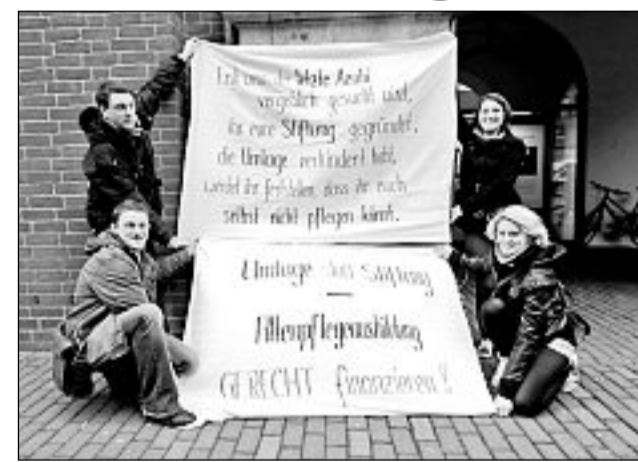 Erst wenn der letzte Azubi
vergeblich gesucht wird,
ihr eure Stiftung gegründet,
die Umlage verhindert habt,
werdet ihr feststellen, dass ihr euch
selbst nicht pflegen könnt.
Umlage statt Stiftung
Altenpflegeausbildung
GERECHT finanzieren!!